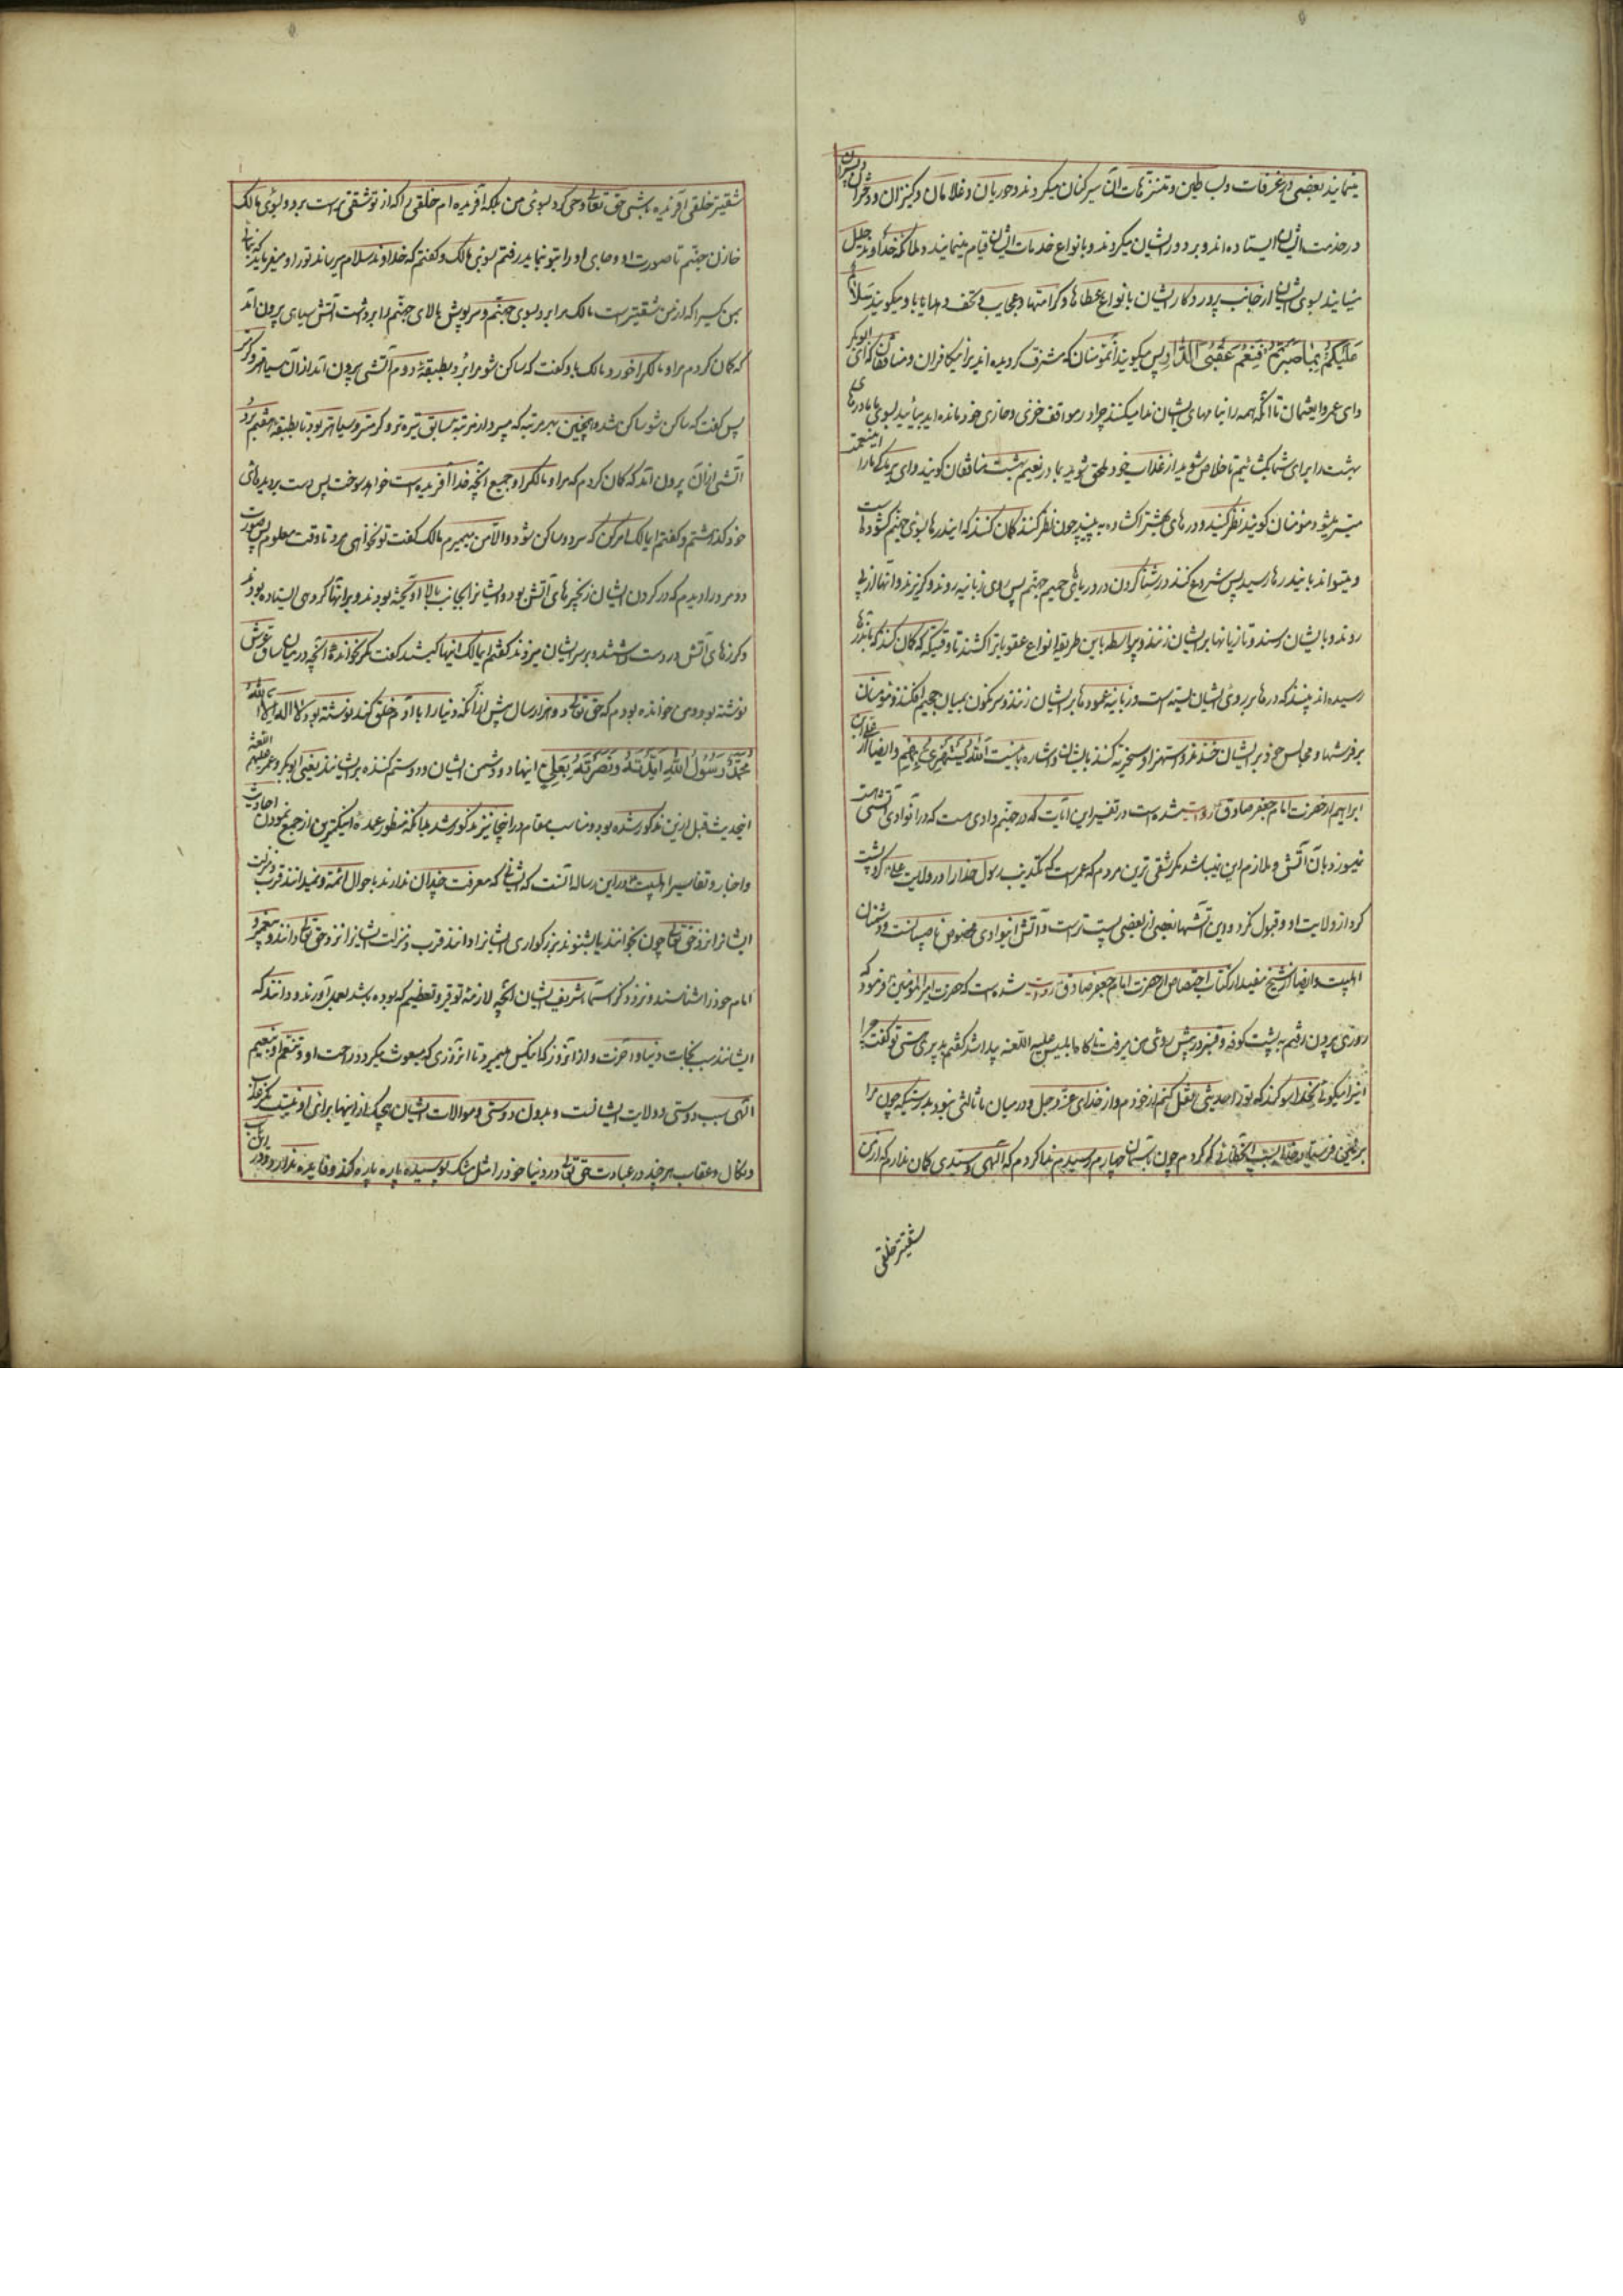 مینمایند بعضی در غرفات و بساطین و متنزهات آن سیر کنان میگردند و حوریان و غلامان و کنیزان و دختران و پسران
در خدمت ایشان ایستاده اند و بر دور ایشان میگردند و بانواع خدمات ایشان قیام مینمایند و ملائکه خداوند جلیل
میایند بسوی ایشان از جانب پروردگار ایشان با نواع عطاها و کرامتها و عجایب و تحف و هدایا و میگویند سَلامٌ
عَلَیْکُمْ بِمَا صَبَرْتُمْ فَنِعْمَ عُقْبَی الدّارِ پس میگویند آنمؤمنان که مشرف گردیده اند بر اینکافران و منافقان که ای ابوبکر
و ای عمر و ایعثمان تا آنکه همه را بنامهای ایشان ندا میکنند چرا در مواقف خزی و خاری خود مانده اید بیائید بسوی ما تا درهای
بهشت را برای شما بگشائیم تا خلاص شوید از عذاب خود و ملحق شوید بما در نعیم بهشت منافقان گویند وای بر ما کی ما را اینعمت
میسر میشود مؤمنان گویند نظر کنید و درهای بهشت را گشاده به بینید چون نظر کنند گمان کنند که ایندرها بسوی جهنم گشوده است
و میتوانند باین درها رسید پس شروع کنند در شنا کردن در دریاهای حمیم جهنم پس روی زبانیه روند و گریزند و آنها از پی
روند و بایشان رسند و تازیانها بر ایشان زنند و پیوسته باین طریق انواع عقوباترا کشند تا وقتیکه گمان کنند که باندرها
رسیده اند بینند که درها بر روی ایشان بسته است و زبانیه عمودها بر ایشان زنند و سرنگون بمیان جحیم افکنند و مؤمنان
بر فرشها و مجالس خود بر ایشان خندند و استهزا و سخریه کنند بایشان و اشاره باینست اَللّهُ یَسْتَهْزِئُ بِهِمْ و ایضا از علی بن
ابراهیم از حضرت امام جعفر صادق روایت شده است در تفسیر این آیات که در جهنم وادی هست که در آنوادی آتشی هست
نمیسوزد بآن آتش و ملازم این نمیباشد مگر شقی ترین مردم که عمر است که تکذیب رسول خدا را در ولایت علی کرد و پشت
کرد از ولایت او و قبول نکرد و این آتشها بعضی از بعضی پست تر است و آتش اینوادی مخصوص ناصبیانست و دشمنان
اهلبیت و ایضا از شیخ مفید از کتاب اختصاص از حضرت امام جعفر صادق روایت شده است که حضرت امیر المؤمنین فرمود که
روزی بیرون رفتم به پشت کوفه و قنبر در پیش روی من میرفت ناگاه ابلیس علیه اللعنه پیدا شد گفتم بد پیری هستی تو گفت چرا
اینرا میگوئی بخدا سوگند که تو را حدیثی نقل کنم از خودم و از خدای عز و جل و در میان ما ثالثی نبود بدرستیکه چون مرا
بر زمین فرستاد خدا بسبب آنخطائی که کردم چون بآسمان چهارم رسیدم ندا کردم که الهی و سیدی گمان ندارم که از من
شقیتر خلقی
شقیتر خلقی آفریده باشی حق تعالی وحی کرد بسوی من بلکه آفریده ام خلقی را که از تو شقی تر است برو بسوی مالک
خازن جهنم تا صورت او و جای او را بتو نماید رفتم بسوی مالک و گفتم که خداوند سلام میرساند تو را و میفرماید که بنمای
بمن کسیرا که از من شقیتر است مالک مرا برد بسوی جهنم و سرپوش بالای جهنم را برداشت آتش سیاهی بیرون آمد
که گمان کردم مرا و مالک را خورد مالک باو گفت که ساکن شو مرا برد بطبقهٔ دوم آتشی بیرون آمد از آن سیاهتر و گرمتر
پس گفت که ساکن شو ساکن شد و همچنین بهر مرتبه که میبرد از مرتبه سابق تیره تر و گرمتر و سیاهتر بود تا بطبقه هفتم برد
آتشی از آن بیرون آمد که گمان کردم که مرا و مالک را و جمیع آنچه خدا آفریده است خواهد سوخت پس دست بر دیدهای
خود گذاشتم و گفتم ایمالک امر کن که سرد و ساکن شود و الا من میمیرم مالک گفت تو نخواهی مرد تا وقت معلوم پس صورت
دو مرد را دیدم که در گردن ایشان زنجیرهای آتش بود و ایشانرا بجانب بالا آویخته بودند و بر آنها گروهی ایستاده بودند
و گرزهای آتش در دست داشتند و بر سر ایشان میزدند گفتم ایمالک اینها کیستند گفت مگر نخواندهٔ آنچه در ساق عرش
نوشته بود و من خوانده بودم که حق تعالی دو هزار سال پیش از آنکه دنیا را یا آدم خلق کند نوشته بود لا اِلهَ اِلّا اللّهُ
مُحَمَّدٌ رَسُولُ اللّهِ اَیَّدْتُهُ وَ نَصَرْتُهُ بِعَلِیٍّ اینها دو دشمن ایشان و دو ستم کننده بر ایشانند یعنی ابوبکر و عمر علیهم اللعنه
اینحدیث قبل ازین مذکور شده بود و مناسب مقام در اینجا نیز مذکور شد بدانکه منظور عمدهٔ اینکمترین از جمع نمودن احادیث
و اخبار و تفاسیر اهلبیت در این رساله آنست که کسانی که معرفت چندان ندارند باحوال ائمه و نمیدانند قرب و منزلت
ایشانرا نزد حق تعالی چون بخوانند یا بشنوند بزرگواری ایشانرا دانند قرب و منزلت ایشانرا نزد حق تعالی دانند و پیغمبر و
امام خود را شناسند و نزد ذکر اسماء شریف ایشان آنچه لازمهٔ توقیر و تعظیم که بوده باشد بعمل آورند و دانند که
ایشانند سبب نجات دنیا و آخرت و از آنروز که اینکس میمیرد تا آنروزی که مبعوث میگردد راحت او و تنعم او بنعیم
الهی بسبب دوستی و ولایت ایشانست و بدون دوستی و موالات ایشان هیچیک از اینها برای او نیست مگر عذاب
و نکال و عقاب هر چند در عبادت حق تعالی در دنیا خود را مثل مشک پوسیده پاره پاره کند و فایده ندارد و در این باب